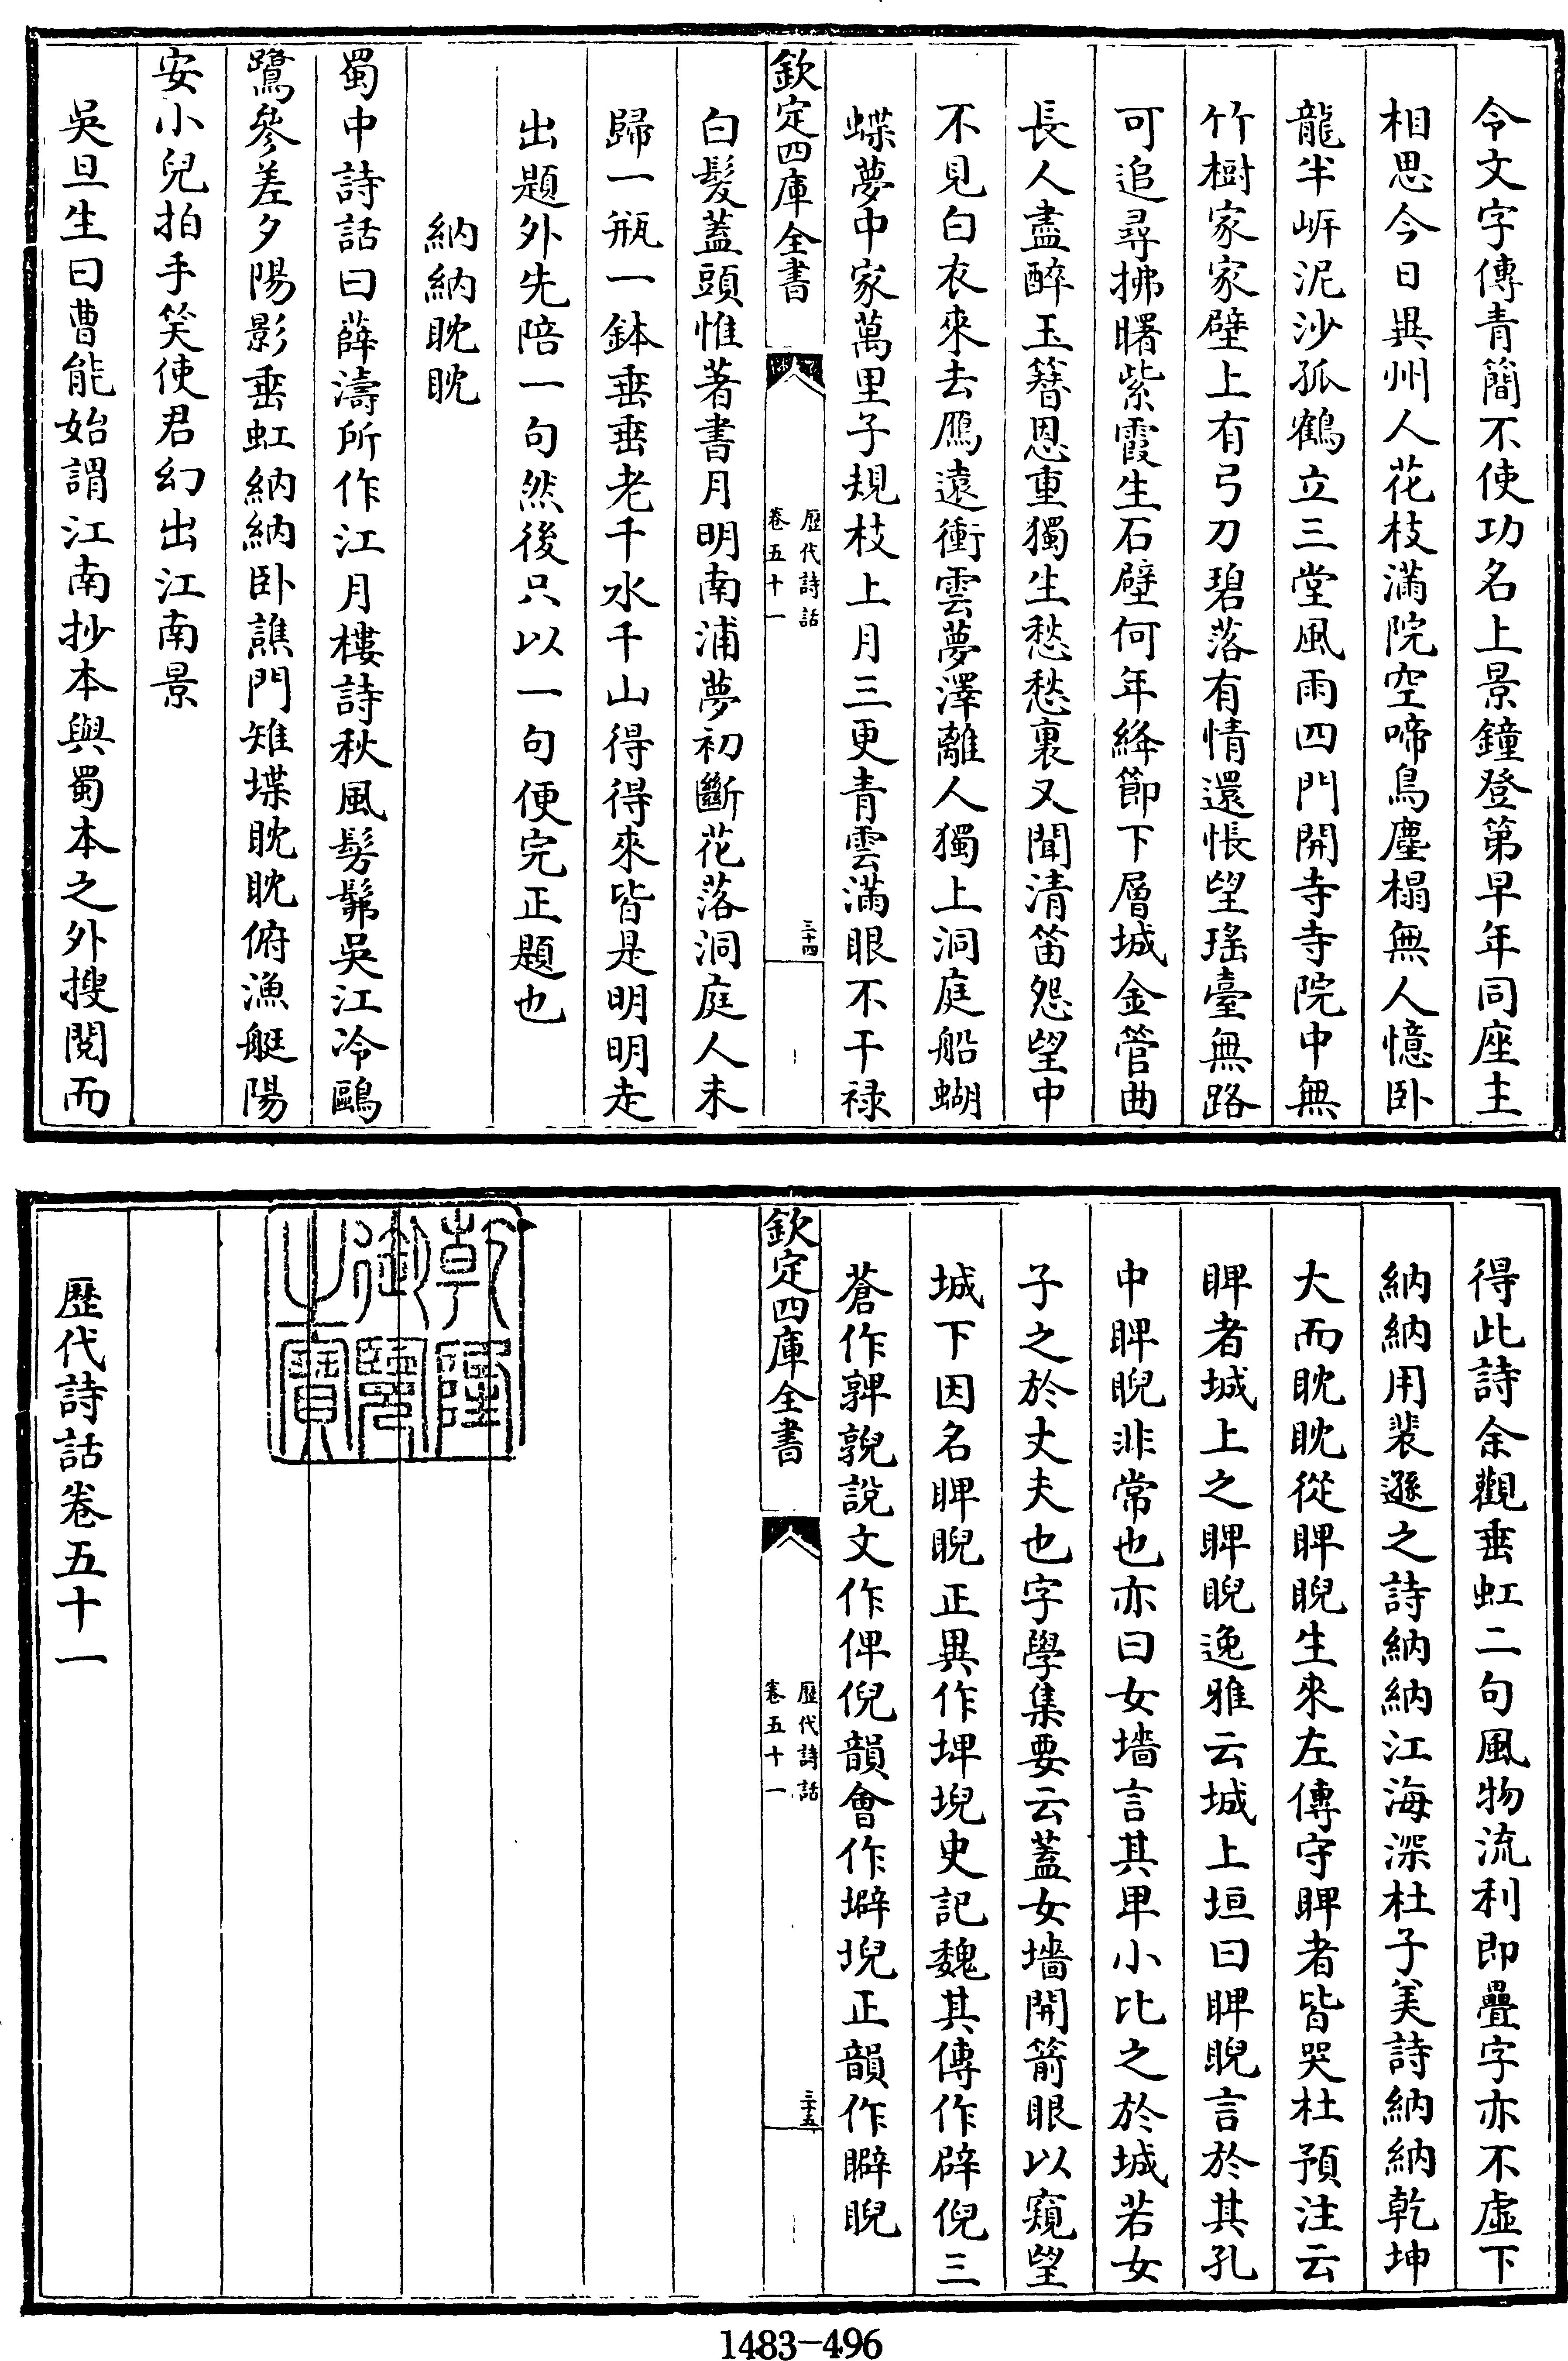 令文字傳青簡不使功名上景鐘登第早年同座主
相思今日異州人花枝滿院空啼鳥塵榻無人憶臥
龍半㟁泥沙孤鶴立三堂風雨四門開寺寺院中無
竹樹家家壁上有弓刀碧落有情還悵望瑤臺無路
可追尋拂曙紫霞生石壁何年絳節下層城金管曲
長人盡醉玉簪恩重獨生愁愁裏又聞清笛怨望中
不見白衣來去鴈遠衝雲夢澤離人獨上洞庭船蝴
蝶夢中家萬里子規枝上月三更青雲滿眼不干禄
欽定四庫全書
歴代詩話
卷五十一
三十四
白髮蓋頭惟著書月明南浦夢初斷花落洞庭人未
歸一瓶一鉢垂垂老千水千山得得來皆是明明走
出題外先陪一句然後只以一句便完正題也
納納眈眈
蜀中詩話曰薛濤所作江月樓詩秋風髣髴吳江冷鷗
鷺參差夕陽影垂虹納納卧譙門雉堞眈眈俯漁艇陽
安小兒拍手笑使君幻出江南景
吳旦生曰曹能始謂江南抄本與蜀本之外搜閱而
得此詩余觀垂虹二句風物流利即疊字亦不虛下
納納用裴遜之詩納納江海深杜子美詩納納乾坤
大而眈眈從睥睨生來左傳守睥者皆哭杜預注云
睥者城上之睥睨逸雅云城上垣曰睥睨言於其孔
中睥睨非常也亦曰女墻言其卑小比之於城若女
子之於丈夫也字學集要云蓋女墻開箭眼以窺望
城下因名睥睨正異作埤堄史記魏其傳作辟倪三
蒼作𩫫𩫪說文作俾倪韻會作壀堄正韻作𥊗睨
欽定四庫全書
歴代詩話
卷五十一
三十五
乾隆御覽之寶
歴代詩話卷五十一
1483-496